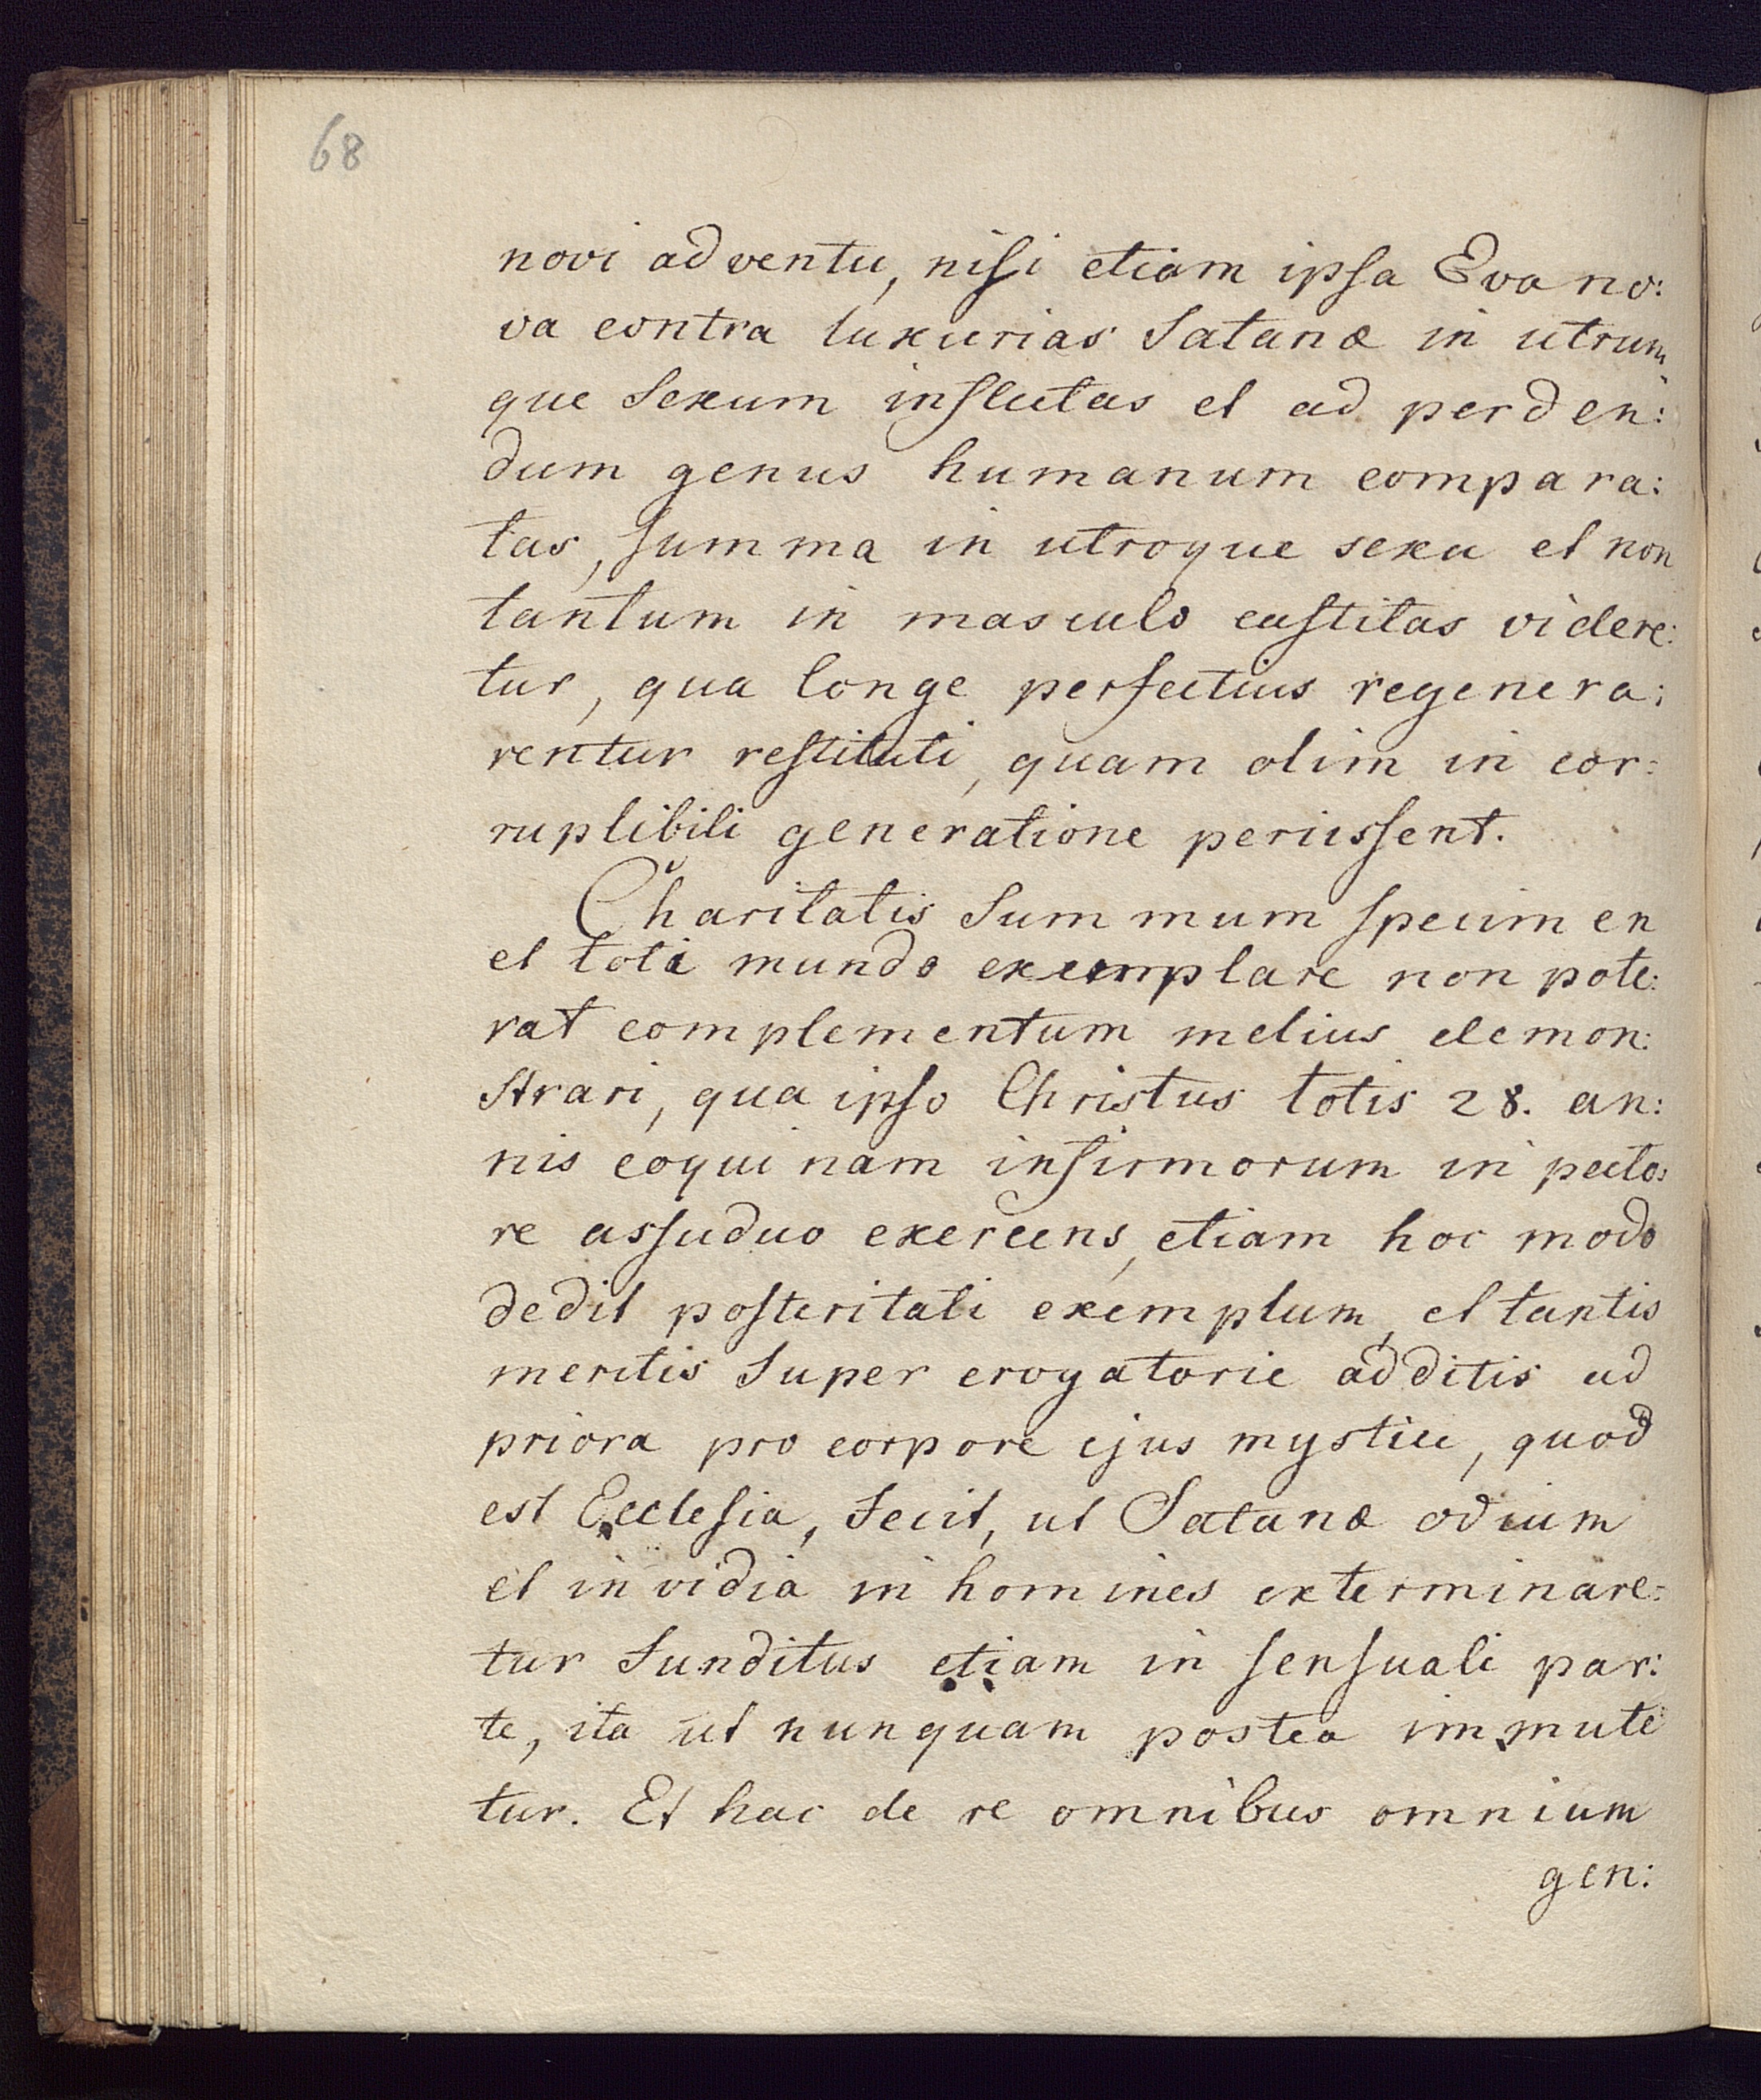 68
novi adventu, niſi etiam ipſa Eva no:
va contra luxurias Satanæ in utrum
que Sexum inflatas et ad perden:
dum genus humanum compara:
tas, ſumma in utroque sexu et non
tantum in masculo caſtitas videre:
tur, qua longe perfectius regenera:
rentur reſtituti, quam olim in cor:
ruptibili generatione periisſent.
Charitatis Summum ſpecimen
et toti mundo exemplare non pote:
rat complementum melius demon:
ſtrari, qua ipſo Christus totis 28. an:
nis coquinam infirmorum in pecto:
re asſuduo exercens, etiam hoc modo
dedit poſteritati exemplum, et tantis
meritis Super erogatorie additis ad
priora pro corpore ejus mystice, quod
est Eccleſia, fecit, ut Satanæ odium
et invidia in homines exterminare:
tur funditus etiam in ſenſuali par:
te, ita ut nunquam postea immute
tur. Et hac de re omnibus omnium
gen: